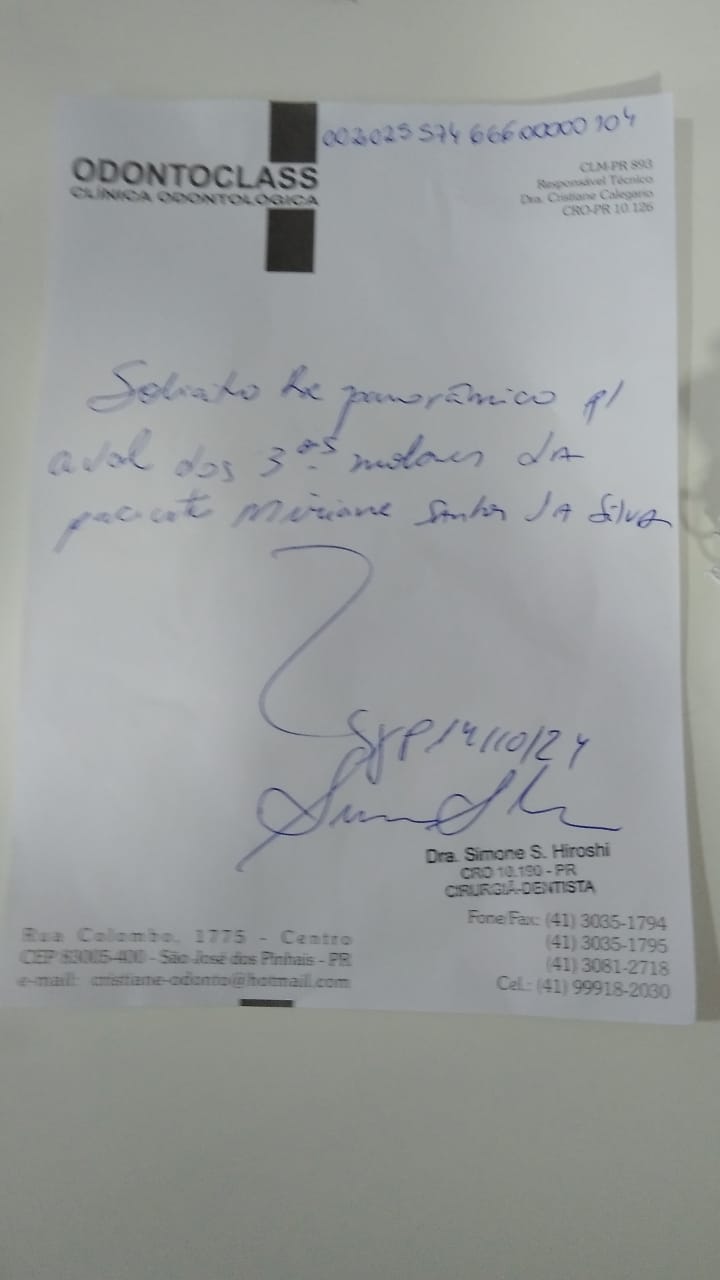 00202557466600000104
ODONTOCLASS
CLÍNICA ODONTOLÓGICA
CLM-PR 893
Responsável Técnico
Dra. Cristiane Calegario
CRO-PR 10.126
Solicito Rx panorâmico p/
aval dos 3ºs molares da
paciente Miriane Santos da Silva
SJP 14/10/24
Dra. Simone S. Hiroshi
CRO 10.190 - PR
CIRURGIÃ-DENTISTA
Rua Colombo, 1775 - Centro
CEP 83005-400 - São José dos Pinhais - PR
e-mail: cristiane-odonto@hotmail.com
Fone/Fax: (41) 3035-1794
(41) 3035-1795
(41) 3081-2718
Cel.: (41) 99918-2030